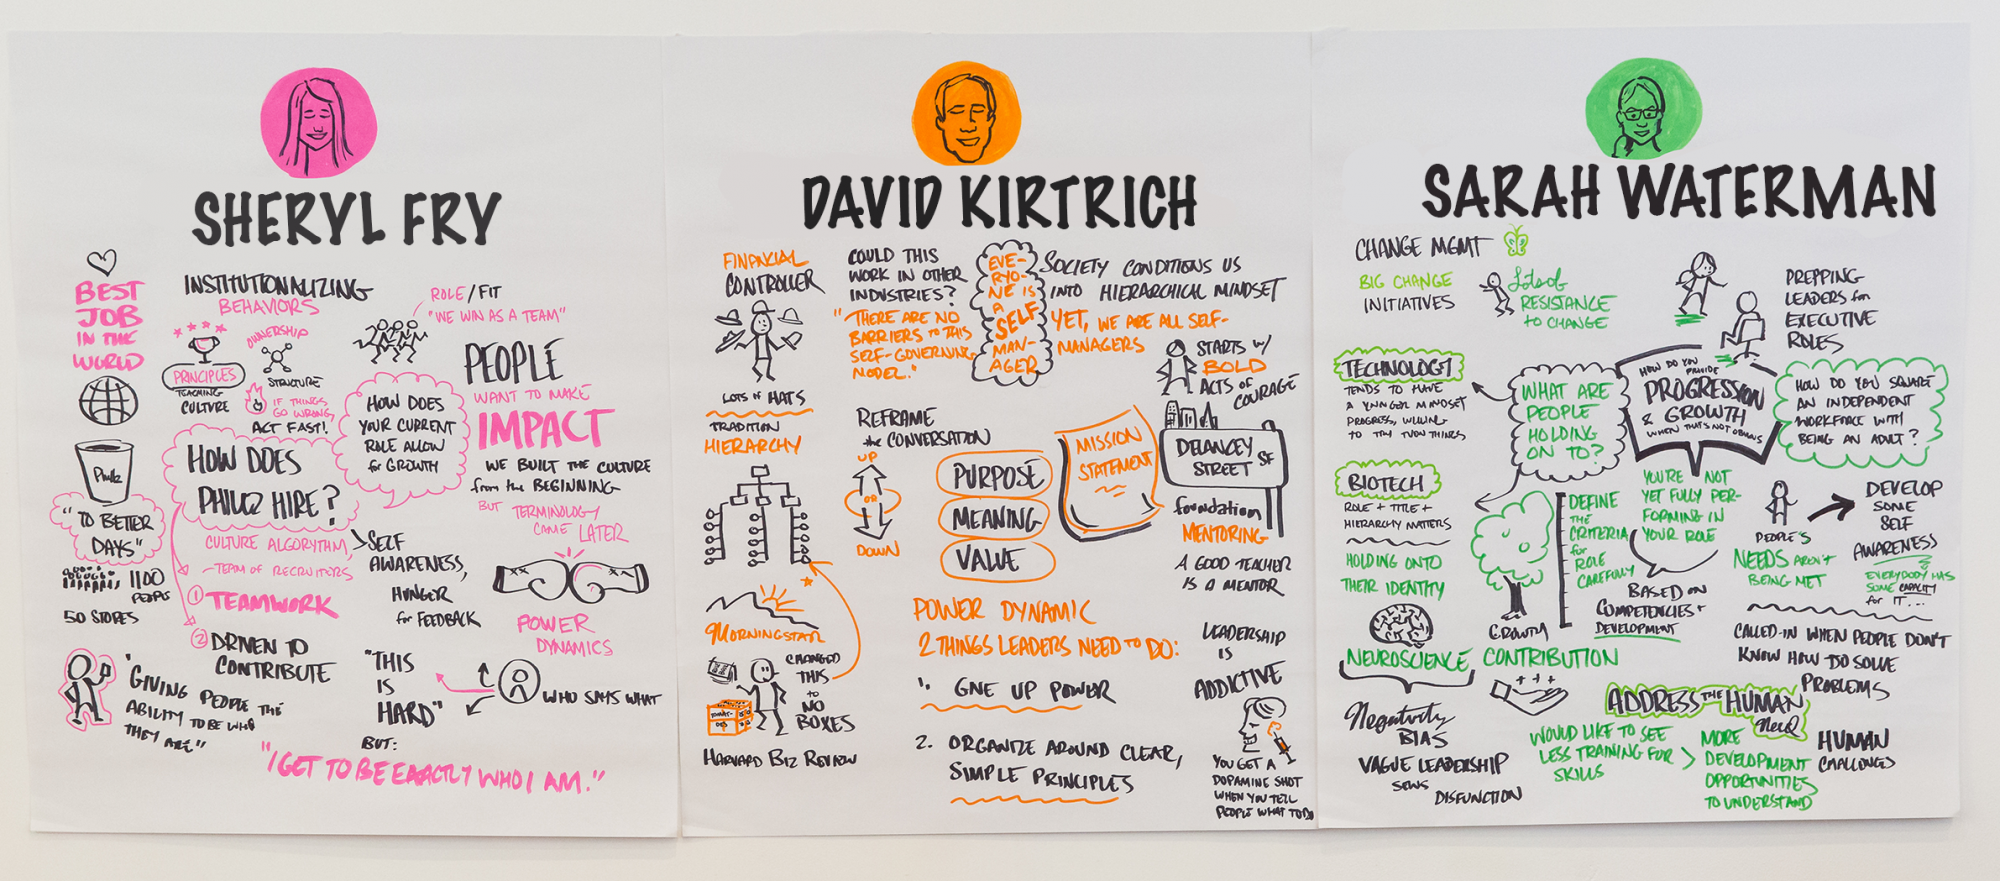 SHERYL FRY
BEST
JOB
IN THE
WORLD
Philz
"TO BETTER
DAYS"
1100
PEOPLE
50 STORES
"GIVING PEOPLE THE
ABILITY TO BE WHO
THEY ARE"
INSTITUTIONALIZING
BEHAVIORS
OWNERSHIP
PRINCIPLES
TEACHING
CULTURE
STRUCTURE
IF THINGS
GO WRONG,
ACT FAST!
ROLE/FIT
"WE WIN AS A TEAM"
HOW DOES
YOUR CURRENT
ROLE ALLOW
for GROWTH
PEOPLE
WANT TO MAKE
IMPACT
WE BUILT THE CULTURE
from the BEGINNING
BUT TERMINOLOGY
CAME LATER
HOW DOES
PHILZ HIRE?
CULTURE ALGORYTHM
- TEAM OF RECRUITORS
SELF
AWARENESS,
HUNGER
for FEEDBACK
1 TEAMWORK
2 DRIVEN TO
CONTRIBUTE
POWER
DYNAMICS
"THIS
IS
HARD"
WHO SAYS WHAT
BUT:
"I GET TO BE EXACTLY WHO I AM."
DAVID KIRTRICH
FINANCIAL
CONTROLLER
LOTS of HATS
TRADITION
HIERARCHY
MORNINGSTAR
CHANGED
THIS
to NO
BOXES
HARVARD BIZ REVIEW
COULD THIS
WORK IN OTHER
INDUSTRIES?
"THERE ARE NO
BARRIERS to THIS
SELF-GOVERNING
MODEL."
EVE-
RYO-
NE IS
A
SELF
MAN-
AGER
SOCIETY CONDITIONS US
INTO HIERARCHICAL MINDSET
YET, WE ARE ALL SELF-
MANAGERS
STARTS w/
BOLD
ACTS of
COURAGE
REFRAME
the CONVERSATION
UP
OR
DOWN
PURPOSE
MEANING
VALUE
MISSION
STATEMENT
DELANCEY
STREET SF
foundation
MENTORING
A GOOD TEACHER
IS A MENTOR
POWER DYNAMIC
2 THINGS LEADERS NEED TO DO:
1. GIVE UP POWER
2. ORGANIZE AROUND CLEAR,
SIMPLE PRINCIPLES
LEADERSHIP
IS
ADDICTIVE
YOU GET A
DOPAMINE SHOT
WHEN YOU TELL
PEOPLE WHAT TO DO
SARAH WATERMAN
CHANGE MGMT
BIG CHANGE
INITIATIVES
Lots of
RESISTANCE
to CHANGE
PREPPING
LEADERS for
EXECUTIVE
ROLES
TECHNOLOGY
TENDS TO HAVE
A YUNGER MINDSET
PROGRESS, WILLING
TO TRY THINGS
WHAT ARE
PEOPLE
HOLDING
ON TO?
HOW DO YOU
PROVIDE
PROGRESSION
& GROWTH
WHEN THAT'S NOT OBVIOUS
HOW DO YOU SQUARE
AN INDEPENDENT
WORKFORCE WITH
BEING AN ADULT?
BIOTECH
ROLE + TITLE +
HIERARCHY MATTERS
HOLDING ONTO
THEIR IDENTITY
GROWTH
DEFINE
THE
CRITERIA
for
ROLE
CAREFULLY
YOU'RE NOT
YET FULLY PER-
FORMING IN
YOUR ROLE
BASED ON
COMPETENCIES +
DEVELOPMENT
PEOPLE'S
NEEDS AREN'T
BEING MET
DEVELOP
SOME
SELF
AWARENESS
EVERYBODY HAS
SOME CAPACITY
for IT...
NEUROSCIENCE
Negativity
BIAS
VAGUE LEADERSHIP
SEWS
DISFUNCTION
CONTRIBUTION
CALLED-IN WHEN PEOPLE DON'T
KNOW HOW TO SOLVE
PROBLEMS
ADDRESS THE HUMAN
Need
WOULD LIKE TO SEE
LESS TRAINING FOR
SKILLS
MORE
DEVELOPMENT
OPPORTUNITIES
TO UNDERSTAND
HUMAN
CHALLENGES